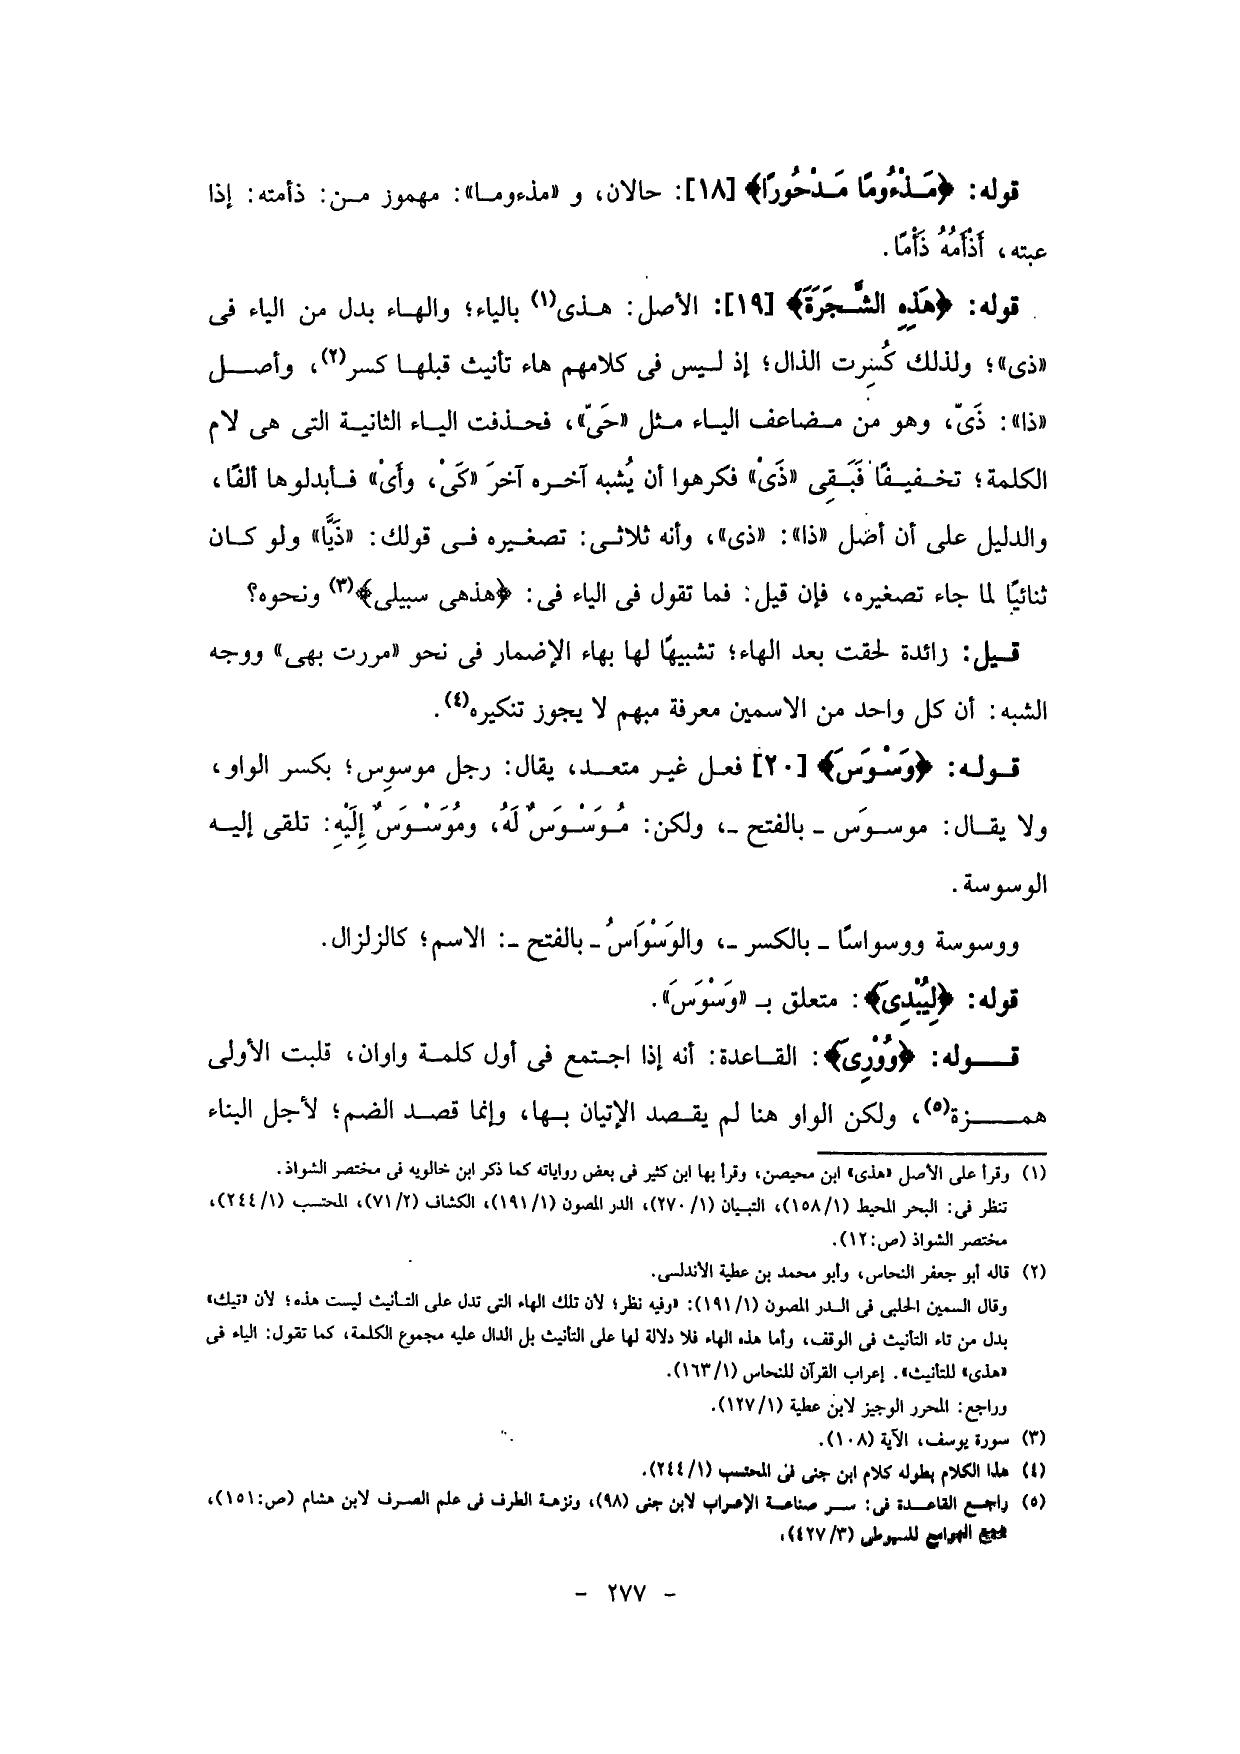 قوله: ﴿مَذْءُومًا مَدْحُورًا﴾ [١٨]: حالان، و «مذءوما»: مهموز من: ذأمته: إذا
عبته، أَذْأَمُهُ ذَأْمًا.
قوله: ﴿هَذِهِ الشَّجَرَةَ﴾ [١٩]: الأصل: هذى(١) بالياء؛ والهاء بدل من الياء فى
«ذى»؛ ولذلك كُسِرت الذال؛ إذ ليس فى كلامهم هاء تأنيث قبلها كسر(٢)، وأصل
«ذا»: ذَىّ، وهو من مضاعف الياء مثل «حَىّ»، فحذفت الياء الثانية التى هى لام
الكلمة؛ تخفيفًا فَبَقِى «ذَىْ» فكرهوا أن يُشبه آخره آخرَ «كَىْ، وأَىْ» فأبدلوها ألفًا،
والدليل على أن أصل «ذا»: «ذى»، وأنه ثلاثى: تصغيره فى قولك: «ذَيَّا» ولو كان
ثنائيًا لما جاء تصغيره، فإن قيل: فما تقول فى الياء فى: ﴿هذهى سبيلى﴾(٣) ونحوه؟
قيل: زائدة لحقت بعد الهاء؛ تشبيهًا لها بهاء الإضمار فى نحو «مررت بهى» ووجه
الشبه: أن كل واحد من الاسمين معرفة مبهم لا يجوز تنكيره(٤).
قوله: ﴿وَسْوَسَ﴾ [٢٠] فعل غير متعد، يقال: رجل موسوِس؛ بكسر الواو،
ولا يقال: موسوَس - بالفتح -، ولكن: مُوَسْوَسٌ لَهُ، ومُوَسْوَسٌ إِلَيْهِ: تلقى إليه
الوسوسة.
ووسوسة ووسواسًا - بالكسر -، والوَسْوَاسُ - بالفتح -: الاسم؛ كالزلزال.
قوله: ﴿لِيُبْدِىَ﴾: متعلق بـ «وَسْوَسَ».
قوله: ﴿وُورِىَ﴾: القاعدة: أنه إذا اجتمع فى أول كلمة واوان، قلبت الأولى
همزة(٥)، ولكن الواو هنا لم يقصد الإتيان بها، وإنما قصد الضم؛ لأجل البناء
(١) وقرأ على الأصل «هذى» ابن محيصن، وقرأ بها ابن كثير فى بعض رواياته كما ذكر ابن خالويه فى مختصر الشواذ.
تنظر فى: البحر المحيط (١/١٥٨)، التبيان (١/٢٧٠)، الدر المصون (١/١٩١)، الكشاف (٢/٧١)، المحتسب (١/٢٤٤)،
مختصر الشواذ (ص:١٢).
(٢) قاله أبو جعفر النحاس، وأبو محمد بن عطية الأندلسى.
وقال السمين الحلبى فى الدر المصون (١/١٩١): «وفيه نظر؛ لأن تلك الهاء التى تدل على التأنيث ليست هذه؛ لأن «تيك»
بدل من تاء التأنيث فى الوقف، وأما هذه الهاء فلا دلالة لها على التأنيث بل الدال عليه مجموع الكلمة، كما تقول: الياء فى
«هذى» للتأنيث». إعراب القرآن للنحاس (١/١٦٣).
وراجع: المحرر الوجيز لابن عطية (١/١٢٧).
(٣) سورة يوسف، الآية (١٠٨).
(٤) هذا الكلام بطوله كلام ابن جنى فى المحتسب (١/٢٤٤).
(٥) راجع القاعدة فى: سر صناعة الإعراب لابن جنى (٩٨)، ونزهة الطرف فى علم الصرف لابن هشام (ص:١٥١)،
همع الهوامع للسيوطى (٣/٤٢٧).
- ٢٧٧ -